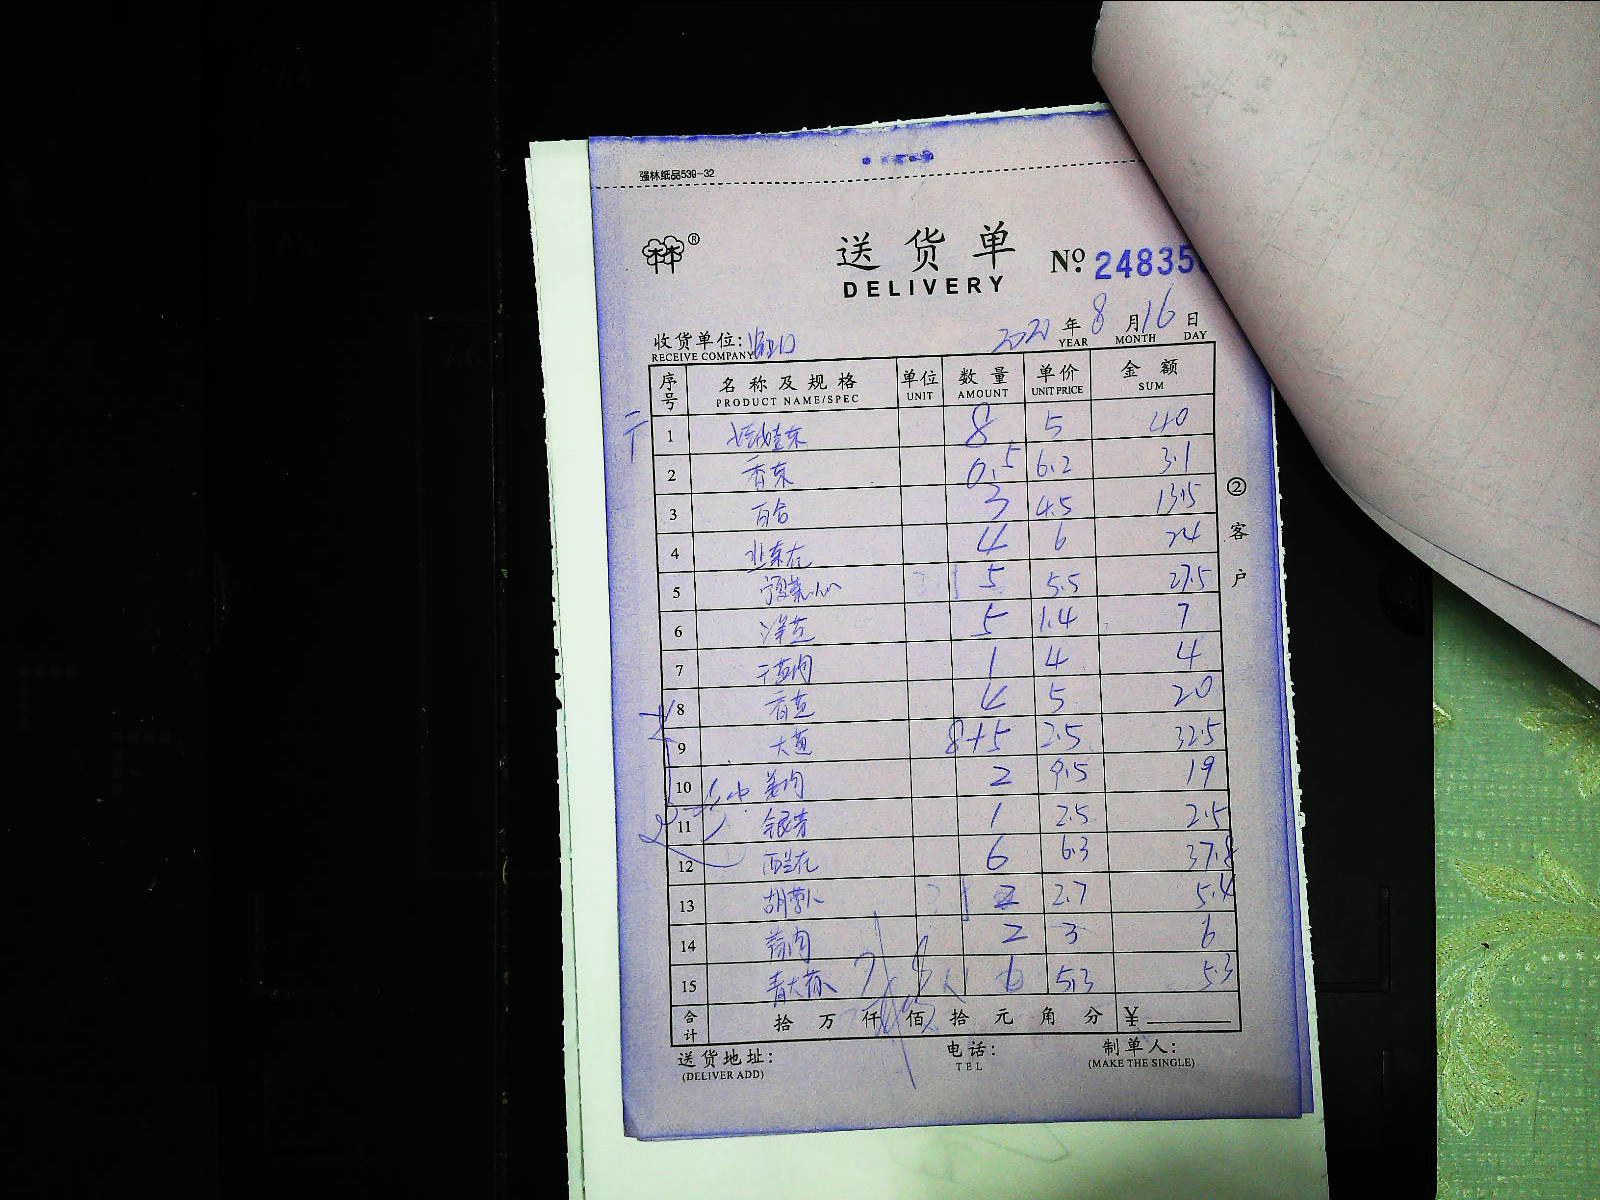 强林纸品539-32
®
送货单
DELIVERY
№ 24835
2021年8月16日
YEAR MONTH DAY
收货单位:
RECEIVE COMPANY
序号 名称及规格 单位 数量 单价 金额
PRODUCT NAME/SPEC UNIT AMOUNT UNIT PRICE SUM
1 娃娃菜 8 5 40
2 香菜 0.5 6.2 3.1
3 百合 3 4.5 13.5
4 韭菜 4 6 24
5 5 5.5 27.5
6 5 1.4 7
7 干葱肉 1 4 4
8 香葱 4 5 20
9 大葱 8+5 2.5 32.5
10 姜肉 2 9.5 19
11 银芽 1 2.5 2.5
12 西兰花 6 6.3 37.8
13 胡萝卜 2 2.7 5.4
14 蒜肉 2 3 6
15 5.3 5.3
合计 拾 万 仟 佰 拾 元 角 分 ¥
送货地址: 电话: 制单人:
(DELIVER ADD) TEL (MAKE THE SINGLE)
② 客户